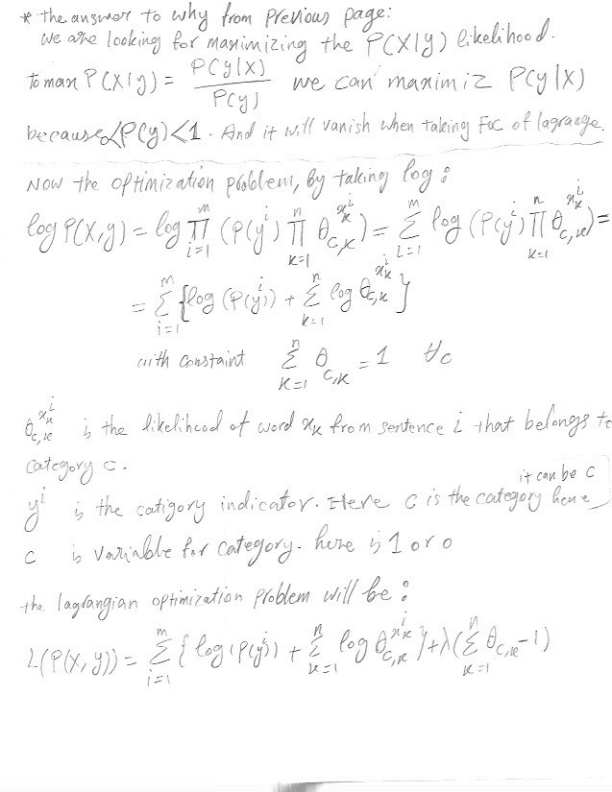 * the answer to why from previous page:
we are looking for maximizing the P(X|y) likelihood.
to max P(X|y) = P(y|X) / P(y) we can maximiz P(y|X)
because P(y)<1. And it will vanish when taking FOC of lagrange.
Now the optimization problem, by taking log:
log P(X,y) = log ∏_{i=1}^{m} (P(y^i) ∏_{k=1}^{n} θ_{c,k}^{x_k^i}) = Σ_{i=1}^{m} log (P(y^i) ∏_{k=1}^{n} θ_{c,k}^{x_k^i}) =
= Σ_{i=1}^{m} {log (P(y^i)) + Σ_{k=1}^{n} log θ_{c,k}^{x_k^i}}
with constaint Σ_{k=1}^{n} θ_{c,k} = 1 ∀c
θ_{c,k}^{x_k^i} is the likelihood of word x_k from sentence i that belongs to
category c.
it can be c
y^i is the catigory indicator. Here c is the category here
c is variable for category. here is 1 or 0
the lagrangian optimization problem will be:
L(P(X,y)) = Σ_{i=1}^{m} { log (P(y^i)) + Σ_{k=1}^{n} log θ_{c,k}^{x_k^i} } + λ(Σ_{k=1}^{n} θ_{c,k} - 1)